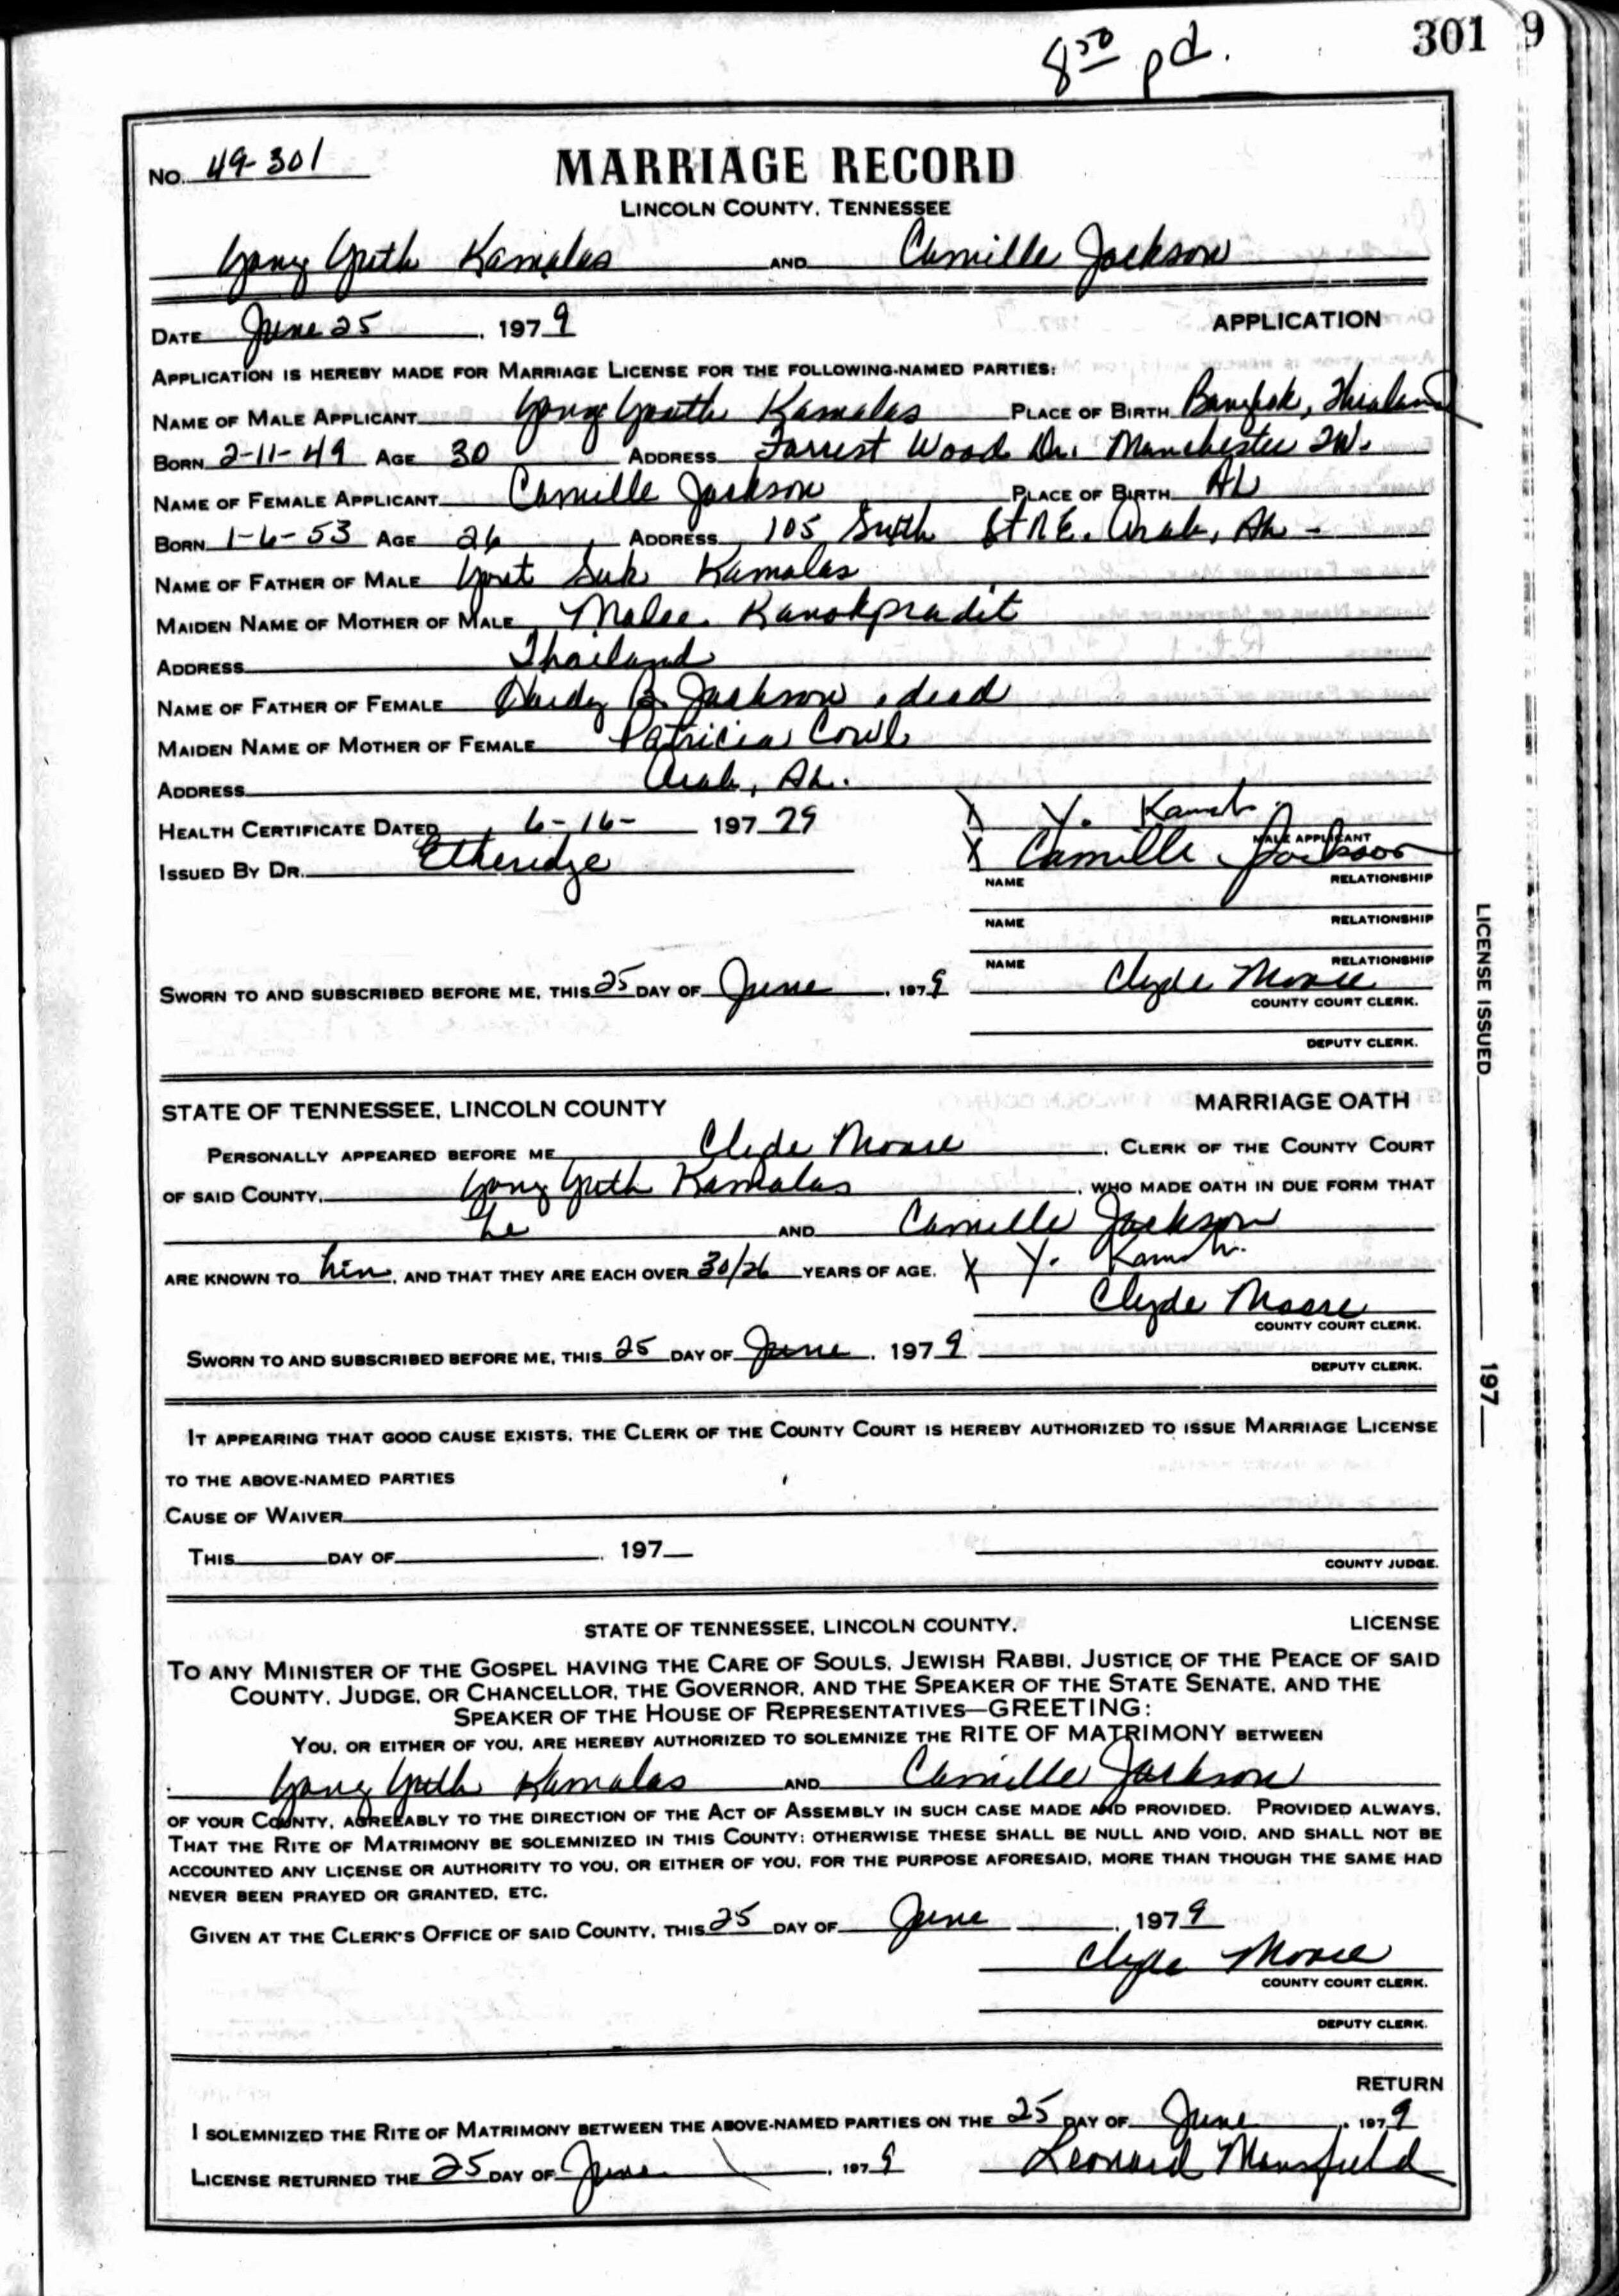 8 50 pd.
301 9
No. 49-301
MARRIAGE RECORD
LINCOLN COUNTY, TENNESSEE
Yong Yuth Kamalas AND Camille Jackson
DATE June 25, 1979 APPLICATION
APPLICATION IS HEREBY MADE FOR MARRIAGE LICENSE FOR THE FOLLOWING-NAMED PARTIES:
NAME OF MALE APPLICANT Yong Yuth Kamalas PLACE OF BIRTH Bangkok, Thialand
BORN 2-11-49 AGE 30 ADDRESS Forrest Wood Dr. Manchester
NAME OF FEMALE APPLICANT Camille Jackson PLACE OF BIRTH AL
BORN 1-6-53 AGE 26 ADDRESS 105 St N.E. Arab, AL -
NAME OF FATHER OF MALE Suk Kamalas
MAIDEN NAME OF MOTHER OF MALE Malee Kanokpradit
ADDRESS Thailand
NAME OF FATHER OF FEMALE B. Jackson, dead
MAIDEN NAME OF MOTHER OF FEMALE Patricia
ADDRESS Arab, AL.
HEALTH CERTIFICATE DATED 6-16- 197 79 X Y.
MALE APPLICANT
ISSUED BY DR. Etheridge X Camille Jackson
NAME RELATIONSHIP
NAME RELATIONSHIP
NAME RELATIONSHIP
SWORN TO AND SUBSCRIBED BEFORE ME, THIS 25 DAY OF June, 1979 Clyde Moore
COUNTY COURT CLERK.
DEPUTY CLERK.
LICENSE ISSUED 197
STATE OF TENNESSEE, LINCOLN COUNTY MARRIAGE OATH
PERSONALLY APPEARED BEFORE ME Clyde Moore, CLERK OF THE COUNTY COURT
OF SAID COUNTY, Yong Yuth Kamalas, WHO MADE OATH IN DUE FORM THAT
he AND Camille Jackson
ARE KNOWN TO him, AND THAT THEY ARE EACH OVER 30/26 YEARS OF AGE. X Y.
Clyde Moore
COUNTY COURT CLERK.
SWORN TO AND SUBSCRIBED BEFORE ME, THIS 25 DAY OF June, 1979
DEPUTY CLERK.
IT APPEARING THAT GOOD CAUSE EXISTS, THE CLERK OF THE COUNTY COURT IS HEREBY AUTHORIZED TO ISSUE MARRIAGE LICENSE
TO THE ABOVE-NAMED PARTIES
CAUSE OF WAIVER
THIS DAY OF , 197
COUNTY JUDGE.
STATE OF TENNESSEE, LINCOLN COUNTY. LICENSE
TO ANY MINISTER OF THE GOSPEL HAVING THE CARE OF SOULS, JEWISH RABBI, JUSTICE OF THE PEACE OF SAID
COUNTY, JUDGE, OR CHANCELLOR, THE GOVERNOR, AND THE SPEAKER OF THE STATE SENATE, AND THE
SPEAKER OF THE HOUSE OF REPRESENTATIVES—GREETING:
YOU, OR EITHER OF YOU, ARE HEREBY AUTHORIZED TO SOLEMNIZE THE RITE OF MATRIMONY BETWEEN
Yong Yuth Kamalas AND Camille Jackson
OF YOUR COUNTY, AGREEABLY TO THE DIRECTION OF THE ACT OF ASSEMBLY IN SUCH CASE MADE AND PROVIDED. PROVIDED ALWAYS,
THAT THE RITE OF MATRIMONY BE SOLEMNIZED IN THIS COUNTY; OTHERWISE THESE SHALL BE NULL AND VOID, AND SHALL NOT BE
ACCOUNTED ANY LICENSE OR AUTHORITY TO YOU, OR EITHER OF YOU, FOR THE PURPOSE AFORESAID, MORE THAN THOUGH THE SAME HAD
NEVER BEEN PRAYED OR GRANTED, ETC.
GIVEN AT THE CLERK'S OFFICE OF SAID COUNTY, THIS 25 DAY OF June, 1979
Clyde Moore
COUNTY COURT CLERK.
DEPUTY CLERK.
RETURN
I SOLEMNIZED THE RITE OF MATRIMONY BETWEEN THE ABOVE-NAMED PARTIES ON THE 25 DAY OF June, 1979
LICENSE RETURNED THE 25 DAY OF June, 1979 Leonard Mansfield